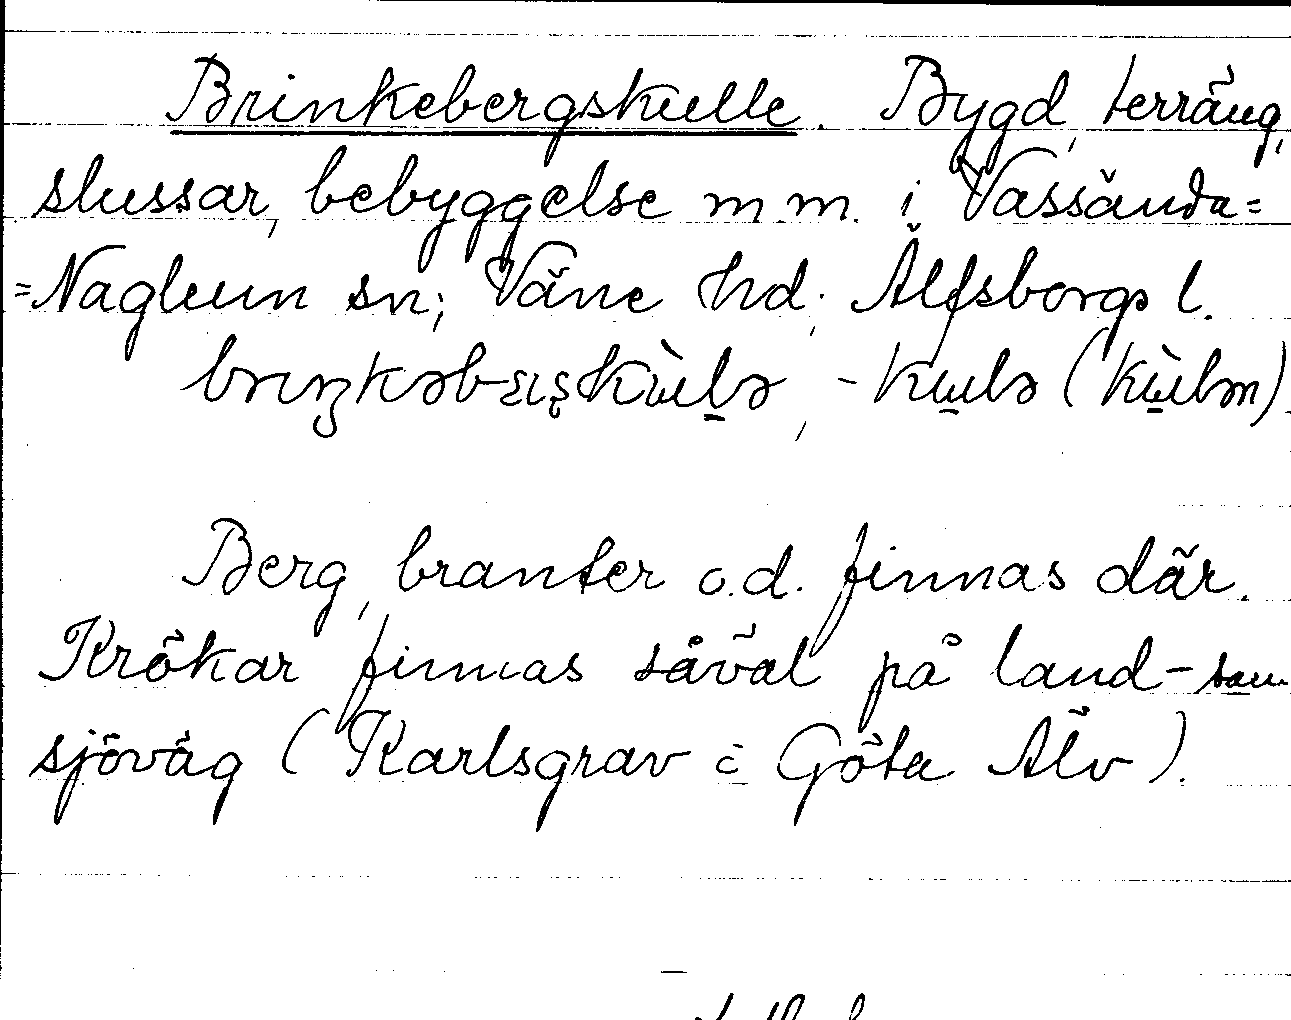 Brinkebergskulle. Bygd, terräng,
slussar, bebyggelse m.m. i Vassända=
=Naglum sn; Väne hd; Älfsborgs l.
Berg, branter o.d. finnas där.
Krökar finnas såväl på land- som
sjöväg (Karlsgrav i Göta Älv).